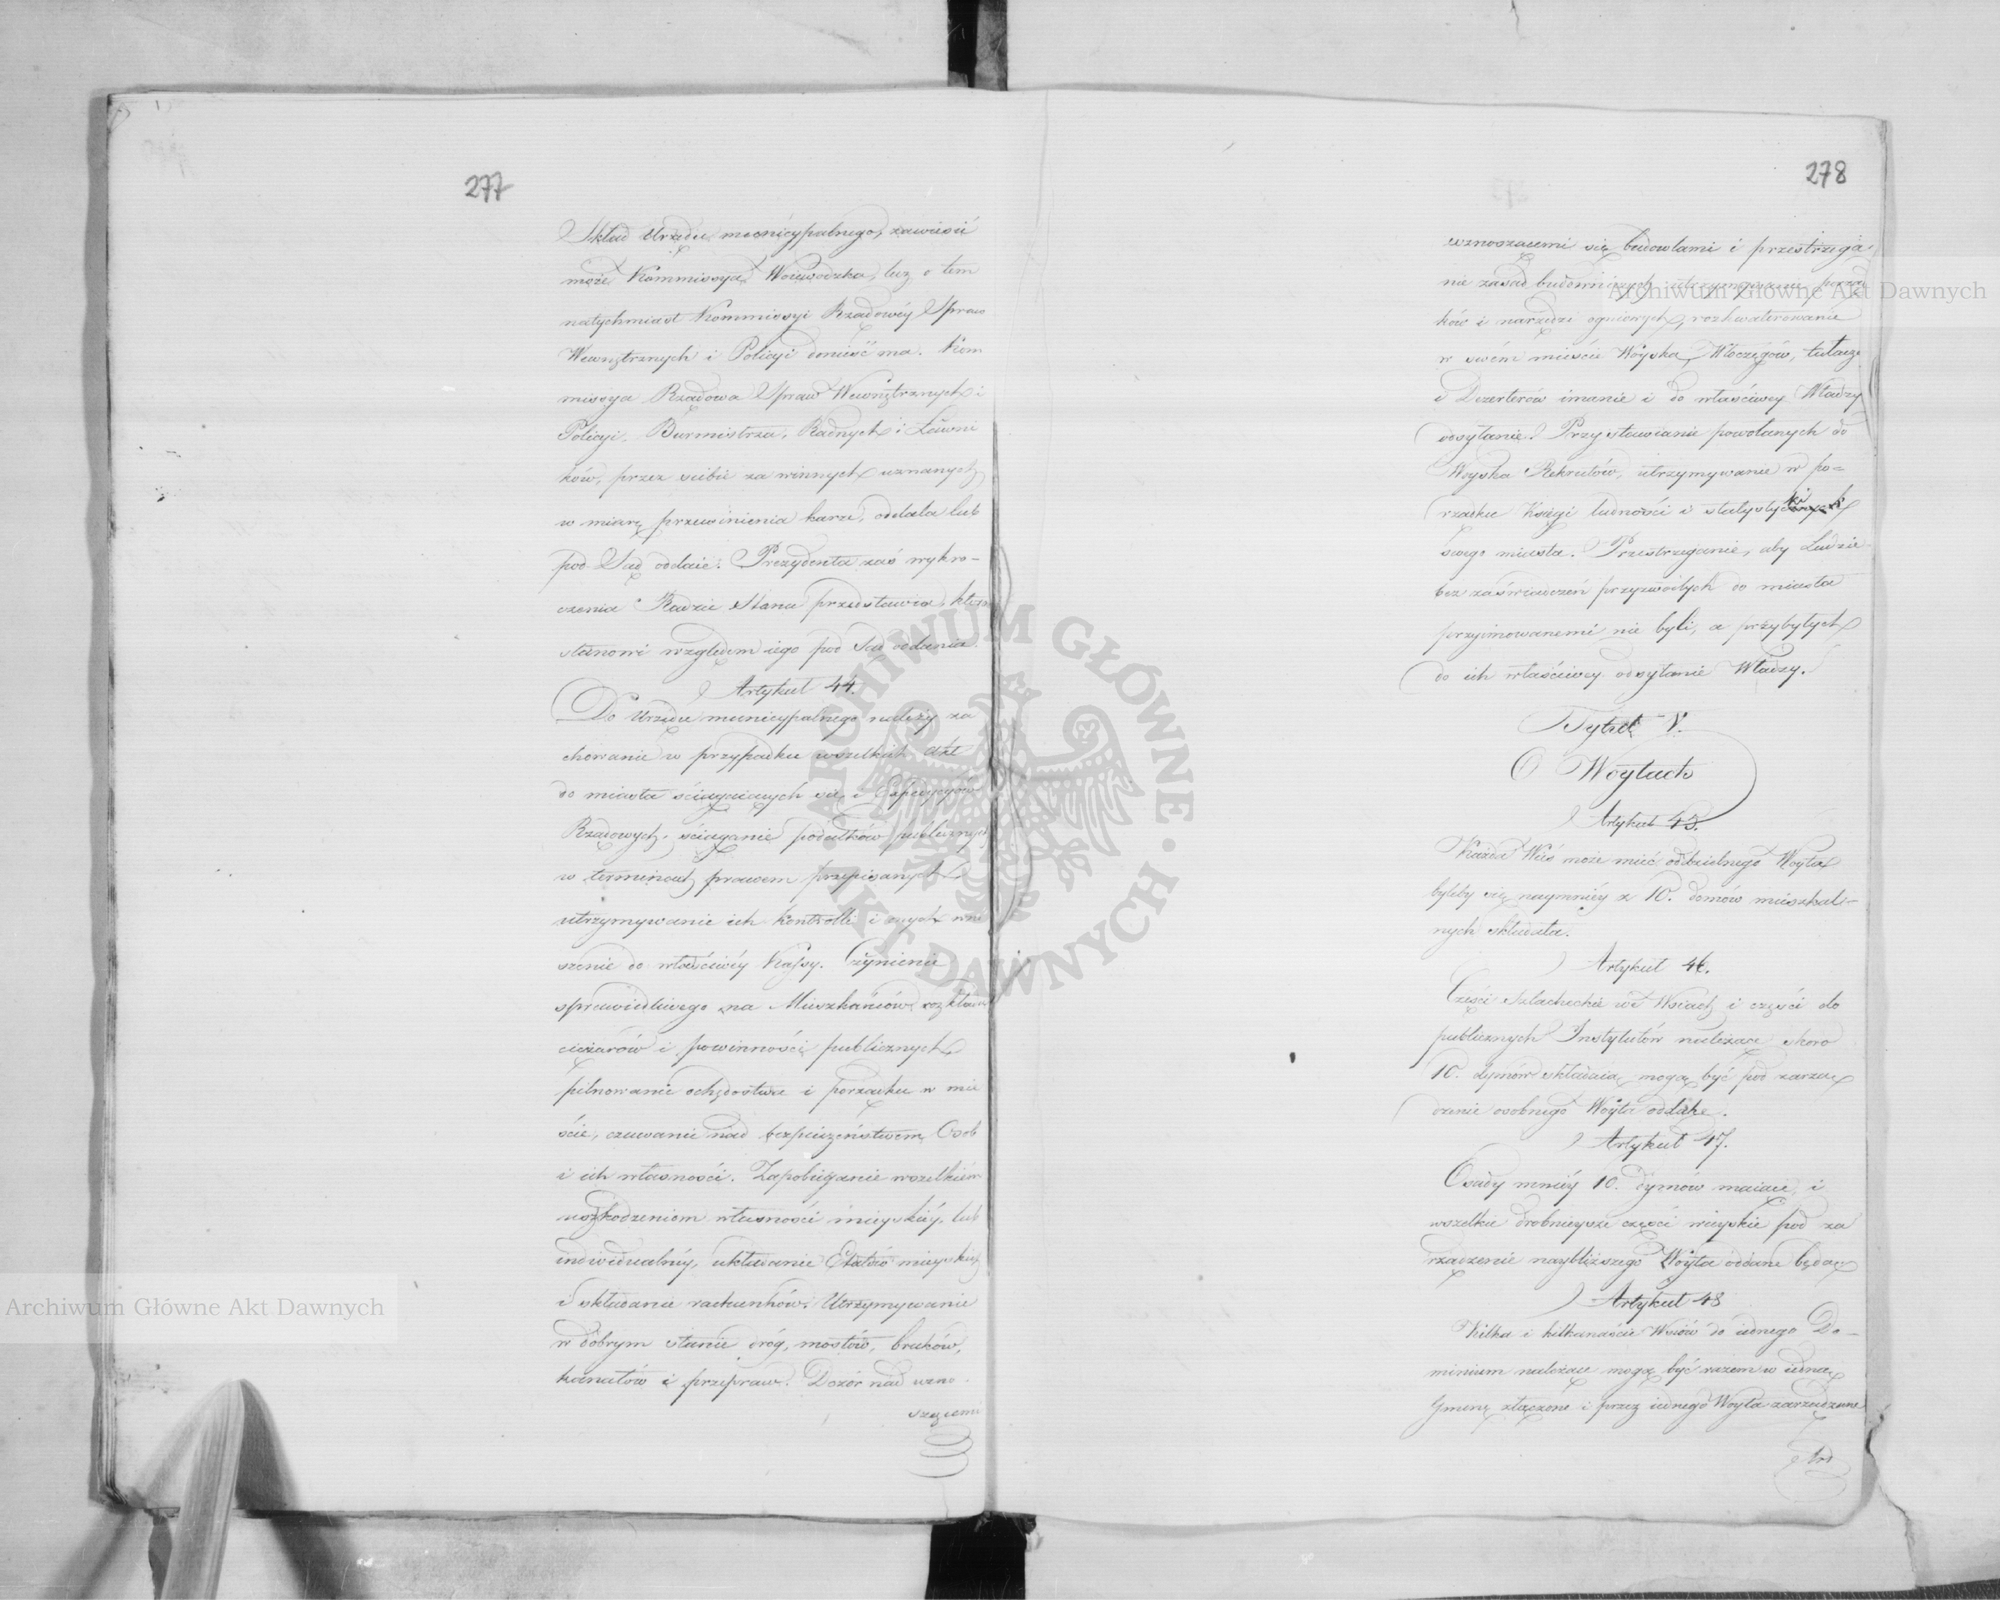 277
Skład Urzędu municypalnego, zawiesić
może Kommissya Woiewodzka, lecz o tem
natychmiast Kommissyi Rządowéy Spraw
Wewnętrznych i Policyi donieść ma. Kom
missya Rządowa Spraw Wewnętrznych i
Policyi, Burmistrza, Radnych i Ławni
ków, przez siebie za winnych uznanych,
w miarę przewinienia karze, oddala lub
pod Sąd oddaie. Prezydenta zaś wykro-
czenia Radzie Stanu przedstawia, która
stanowi względem iego pod Sąd oddania.
Artykuł 44.
Do Urzędu municypalnego należy za
chowanie w przypadku wszelkich Akt
do miasta ściągaiących się, i
Rządowych, ściąganie podatków publicznych
w terminach prawem przepisanych
utrzymywanie ich kontrolli i onych wno
szenie do właściwéy Kassy. Czynienie
sprawiedliwego na Mieszkańców rozkładu
ciężarów i powinności publicznych
pilnowanie ochędostwa i porządku w mie
ście, czuwanie nad bezpieczeństwem Osob
i ich własności. Zapobieganie wszelkim
uszkodzeniom własności mieyskiéy, lub
indywidualnéy, układanie Etatów mieyskich
i składanie rachunków. Utrzymywanie
w dobrym stanie dróg, mostów, bruków,
kanałów i przepraw. Dozór nad wzno
szącemi
278
wznoszącemi się budowlami i przestrzega-
nie zasad budowniczych, utrzymywanie porząd
ków i narzędzi ogniowych, rozkwaterowanie
w swém mieście Woyska, Włoczęgów, tułaczy
i Dezerterów imanie i do właściwey Władzy
odsyłanie. Przystawianie powołanych do
Woyska Rekrutów, utrzymywanie w po=
rządku Księgi ludności i statystyki
swego miasta. Przestrzeganie, aby Ludzie
bez zaświadczeń przyzwoitych do miasta
przyimowanemi nie byli, a przybyłych
do ich właściwey odsyłanie Władzy.
Tytuł V.
O Woytach
Artykuł 45.
Każda Wieś może mieć oddzielnego Woyta
byleby się naymniéy z 10. domów mieszkal-
nych składała.
Artykuł 46.
Części Szlacheckie we Wsiach i części do
publicznych Instytutów należące skoro
10. dymów składaią, mogą być pod zarzą
dzenie osobnego Woyta oddane.
Artykuł 47.
Osady mniéy 10. dymów maiące, i
wszelkie drobnieysze części wieyskie pod za
rządzenie naybliższego Woyta oddane będą
Artykuł 48
Kilka i kilkanaście Wsiów do iednego Do-
minium należące mogą być razem w iedną
Gminę złączone i przez iednego Woyta zarządzane
Art
Archiwum Główne Akt Dawnych
Archiwum Główne Akt Dawnych
ARCHIWUM GŁÓWNE · AKT DAWNYCH ·